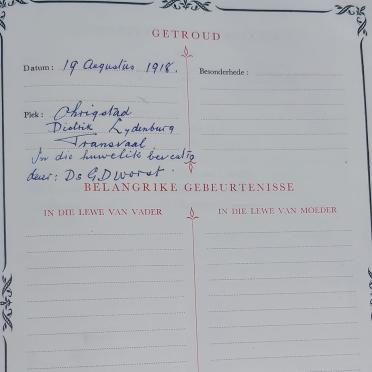 GETROUD
Datum: 19 Augustus 1918.
Besonderhede:
Plek: Ohrigstad
Distrik Lydenburg
Transvaal
In die huwelik bevestig
deur: Ds G D Worst.
BELANGRIKE GEBEURTENISSE
IN DIE LEWE VAN VADER
IN DIE LEWE VAN MOEDER